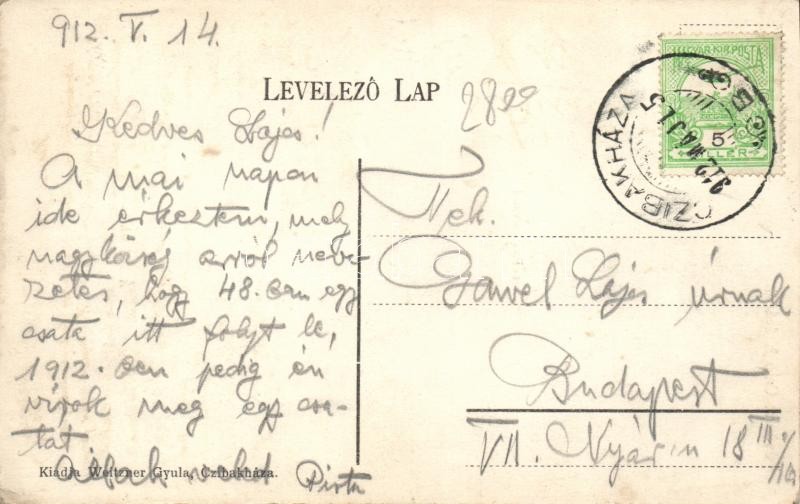 912. V. 14.
LEVELEZŐ LAP
2820
Kedves Lajos!
A mai napon
ide érkeztem, mely
nagyközség arról neve-
zetes, hogy 48.-ban egy
csata itt folyt le,
1912.-ben pedig én
vívok meg egy csa-
tát
Pista
Kiadja Weitzner Gyula, Czibakháza.
Nek.
Gawel Lajos úrnak
Budapest
VII. Nyár u 18 III
MAGYAR KIR. POSTA
5
FILLÉR
CZIBAKHÁZA
912 MAJ 15